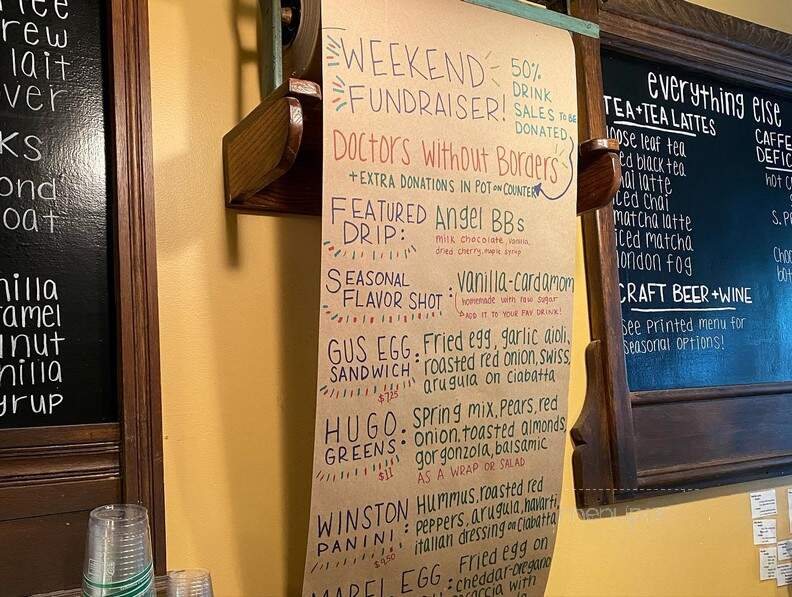 rew
lait
over
ond
oat
nilla
ramel
lnut
nilla
yrup
WEEKEND
FUNDRAISER!
50%
DRINK
SALES TO BE
DONATED
DOCTORS WITHOUT BORDERS
+ EXTRA DONATIONS IN POT ON COUNTER
FEATURED
DRIP:
Angel BBs
milk chocolate, vanilla,
dried cherry, maple syrup
SEASONAL
FLAVOR SHOT:
vanilla-cardamom
(homemade with raw sugar
ADD IT TO YOUR FAV DRINK!
GUS EGG
SANDWICH:
$7.25
Fried egg, garlic aioli,
roasted red onion, swiss,
arugula on ciabatta
HUGO
GREENS:
$11
Spring mix, pears, red
onion, toasted almonds,
gorgonzola, balsamic
AS A WRAP OR SALAD
WINSTON
PANINI:
$9.50
Hummus, roasted red
peppers, arugula, havarti,
italian dressing on ciabatta
MABEL EGG
Fried egg on
cheddar-oregano
focaccia with
everything else
TEA+TEA LATTES
loose leaf tea
iced black tea
chai latte
iced chai
matcha latte
iced matcha
london fog
CRAFT BEER+WINE
see printed menu for
seasonal options!
CAFFE
DEFIC
hot c
S. P
Choc
bot
menupix